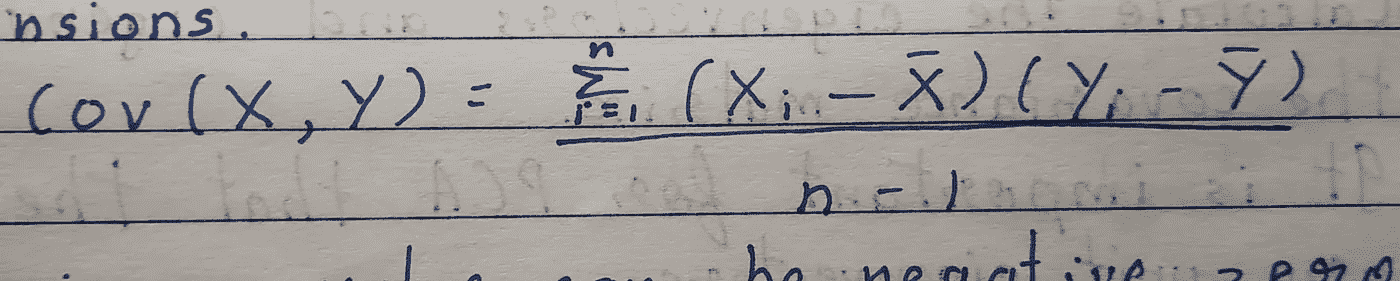 nsions.
Cov (X, Y) = \frac{\sum_{i=1}^{n} (X_i - \bar{X})(Y_i - \bar{Y})}{n - 1}
be negative zero